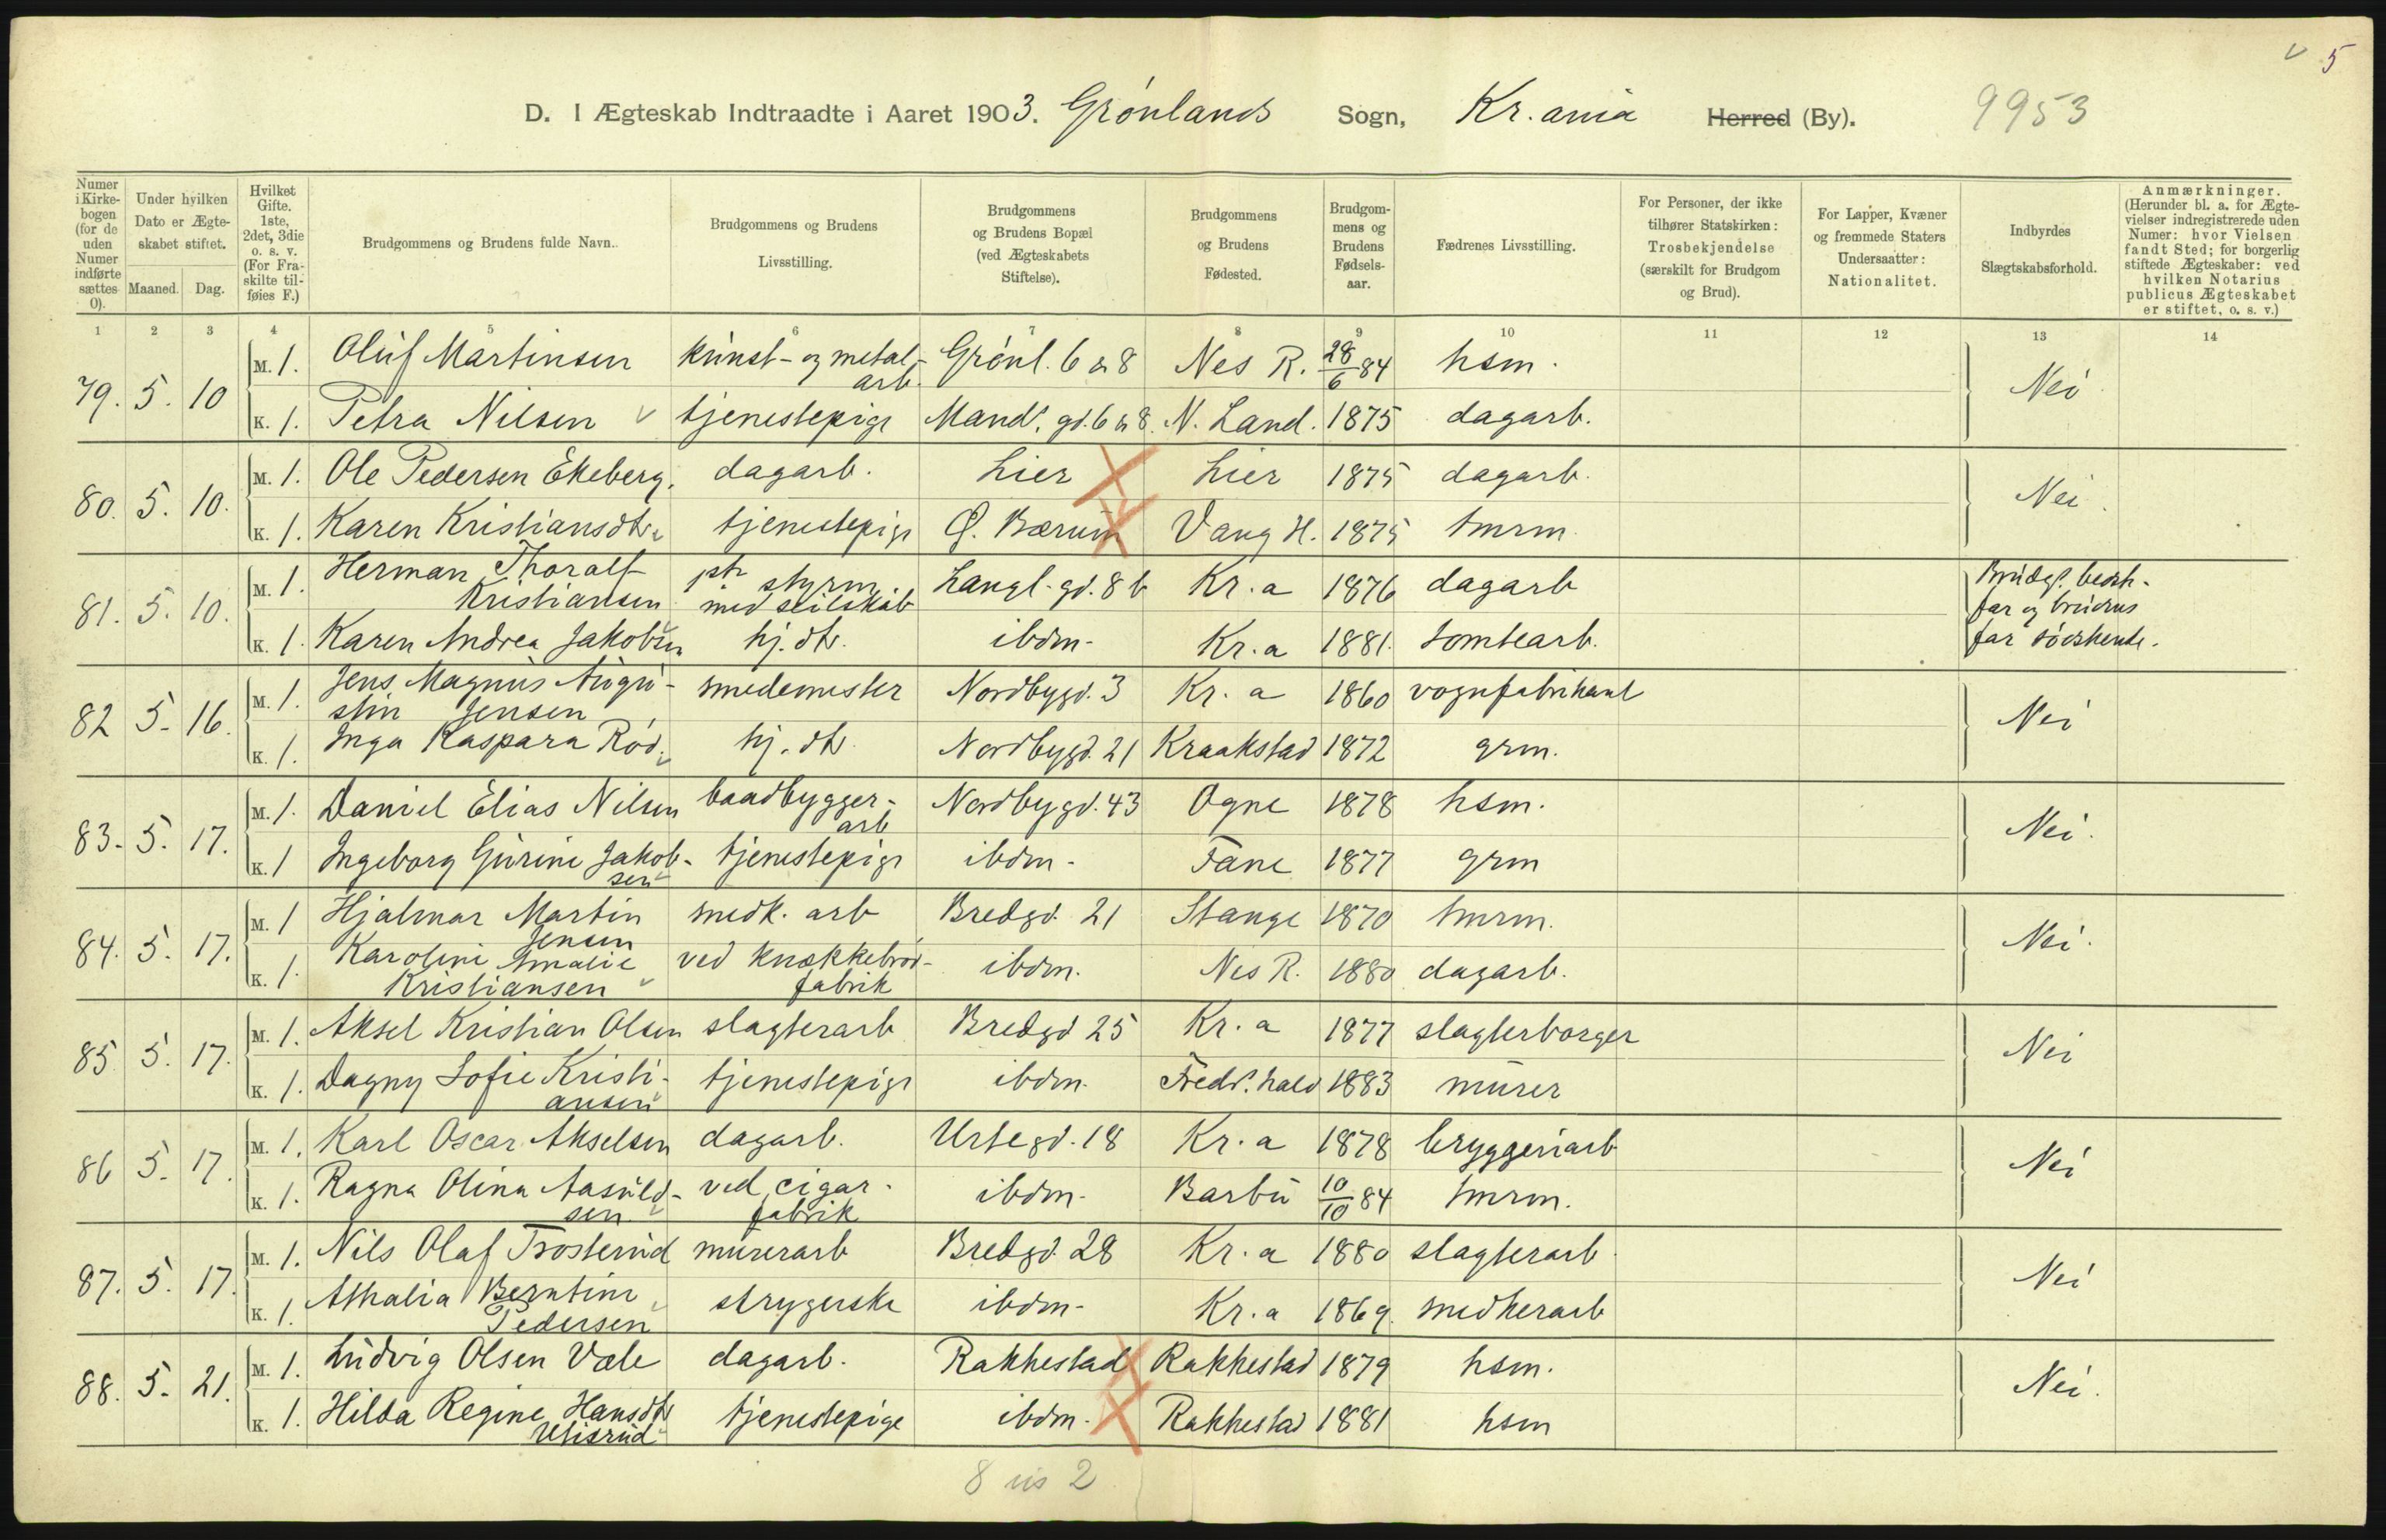 ✓ 5
D. I Ægteskab Indtraadte i Aaret 1903. Grønlands Sogn, Kr.ania Herred (By). 9953
Numer i Kirkebogen (for de uden Numer indførte sættes 0).
Under hvilken Dato er Ægteskabet stiftet.
Maaned. Dag.
Hvilket Gifte. 1ste, 2det, 3die o. s. v. (For Fraskilte tilføies F.)
Brudgommens og Brudens fulde Navn.
Brudgommens og Brudens Livsstilling.
Brudgommens og Brudens Bopæl (ved Ægteskabets Stiftelse).
Brudgommens og Brudens Fødested.
Brudgommens og Brudens Fødselsaar.
Fædrenes Livsstilling.
For Personer, der ikke tilhører Statskirken: Trosbekjendelse (særskilt for Brudgom og Brud).
For Lapper, Kvæner og fremmede Staters Undersaatter: Nationalitet.
Indbyrdes Slægtskabsforhold.
Anmærkninger. (Herunder bl. a. for Ægtevielser indregistrerede uden Numer: hvor Vielsen fandt Sted; for borgerlig stiftede Ægteskaber: ved hvilken Notarius publicus Ægteskabet er stiftet, o. s. v.)
1 2 3 4 5 6 7 8 9 10 11 12 13 14
79. 5. 10 M. 1. Oluf Martinsen kunst- og metal-arb. Grønl. 6 & 8 Nes R. 28/6 84 hsm. Nei
K. 1. Petra Nilsen tjenestepige Mands. gd. 6 & 8. N. Land. 1875 dagarb.
80. 5. 10. M. 1. Ole Pedersen Ekeberg. dagarb. Lier Lier 1875 dagarb. Nei.
K. 1. Karen Kristiansdtr. tjenestepige Ø. Bærum Vang H. 1875 tmrm.
81. 5. 10. M. 1. Herman Thoralf Kristiansen styrm. med seilskib Langl. gd. 8 b Kr.a 1876 dagarb Brudg. bedstefar og brudens far søskende.
K. 1. Karen Andrea Jakobsen hj. dtr. ibdm. Kr.a 1881. tomtearb.
82 5. 16. M. 1. Jens Magnus Augustin Jensen smedemester Nordbygd. 3 Kr.a 1860 vognfabrikant Nei
K. 1. Inga Kaspara Rød. hj. dtr. Nordbygd. 21 Kraakstad 1872 grm.
83. 5. 17. M. 1. Daniel Elias Nilsen baadbygger-arb Nordbygd. 43 Ogne 1878 hsm. Nei.
K. 1 Ingeborg Gurine Jakobsen tjenestepige ibdm. Fane 1877 grm
84. 5. 17. M. 1 Hjalmar Martin Jensen snedk. arb Bredgd. 21 Stange 1870 tmrm. Nei.
K. 1. Karoline Amalie Kristiansen ved knækkebrød-fabrik ibdm. Nes R. 1880 dagarb.
85 5. 17. M. 1. Aksel Kristian Olsen slagterarb Bredgd 25 Kr.a 1877 slagterborger Nei
K. 1. Dagny Sofie Kristiansen tjenestepige ibdm. Fredr.hald 1883 murer
86 5. 17. M. 1. Karl Oscar Akselsen dagarb. Urtegd. 18 Kr.a 1878 bryggeriarb Nei
K. 1. Ragna Olina Aasuldsen ved cigar-fabrik ibdm. Barbu 10/10 84 tmrm.
87. 5. 17. M. 1. Nils Olaf Trosterud murerarb Bredgd. 28 Kr.a 1880 slagterarb. Nei
K. 1. Athalia Berntine Pedersen strygerske ibdm. Kr.a 1869. snedkerarb
88. 5. 21. M. 1. Ludvig Olsen Væle dagarb. Rakkestad Rakkestad 1879 hsm. Nei.
K. 1. Hilda Regine Hansdtr tjenestepige ibdm. Rakkestad 1881 hsm
8 us 2